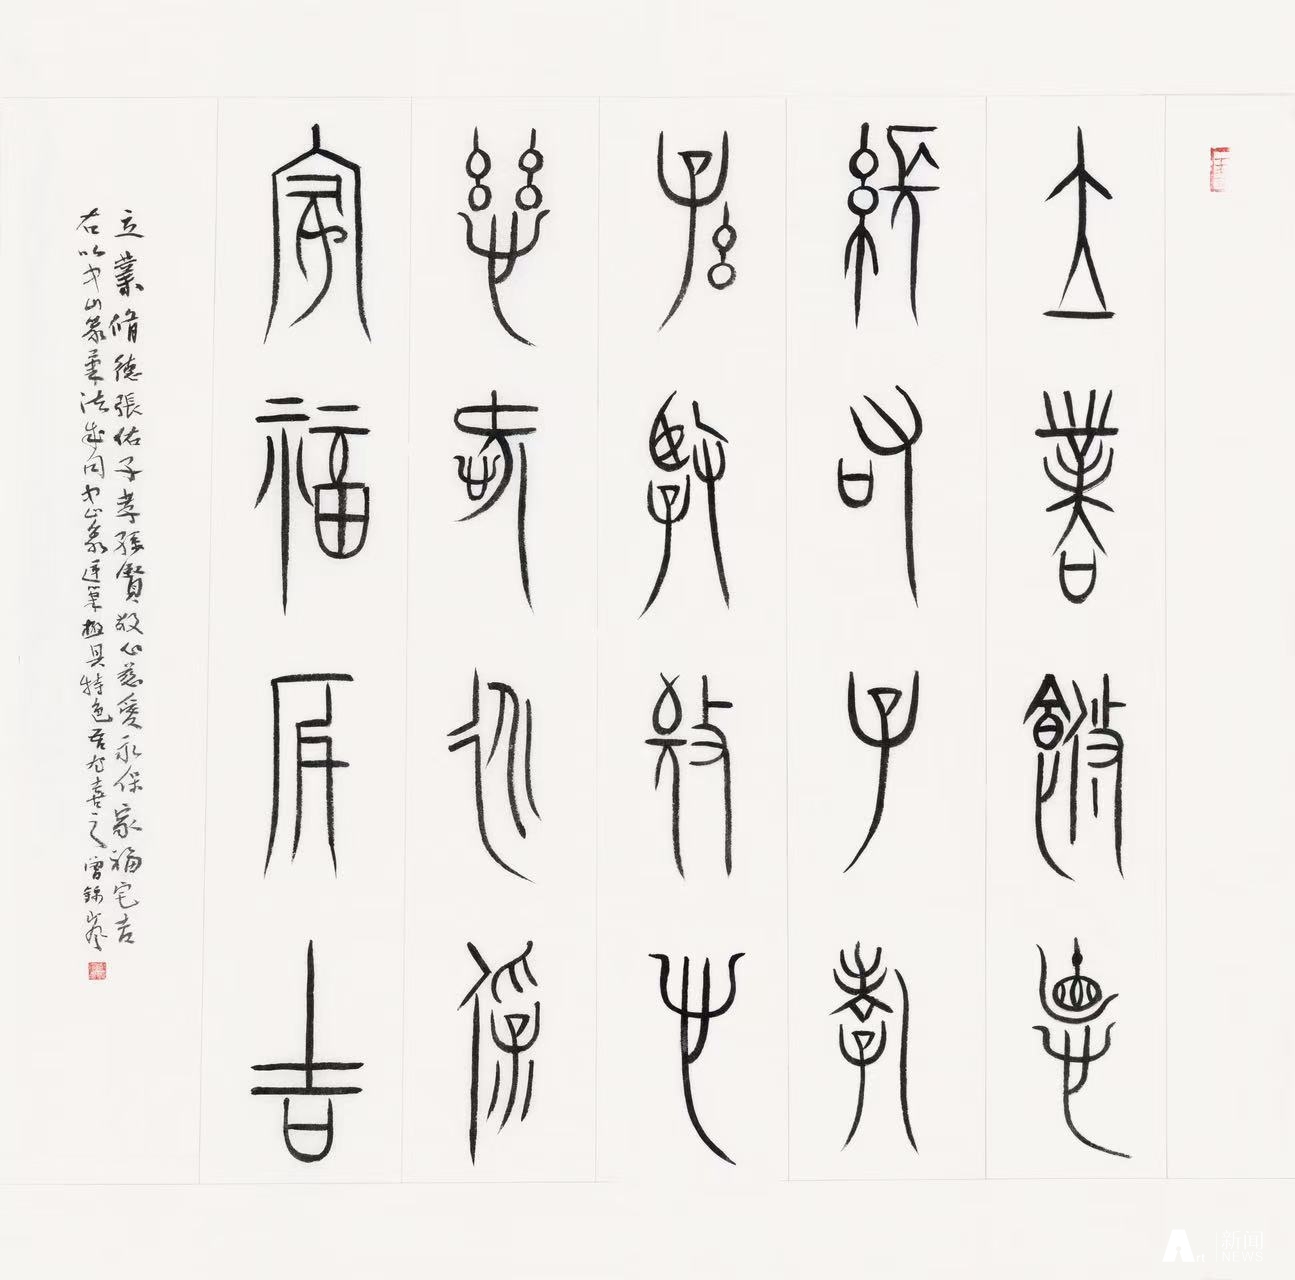 立業脩德
張佑子孝
孫賢敬心
慈愛永保
家福宅吉
立業脩德張佑子孝孫賢敬心慈愛永保家福宅吉
右以中山篆法成 中山篆運筆極具特色吾尤喜之曾錦
新闻
NEWS